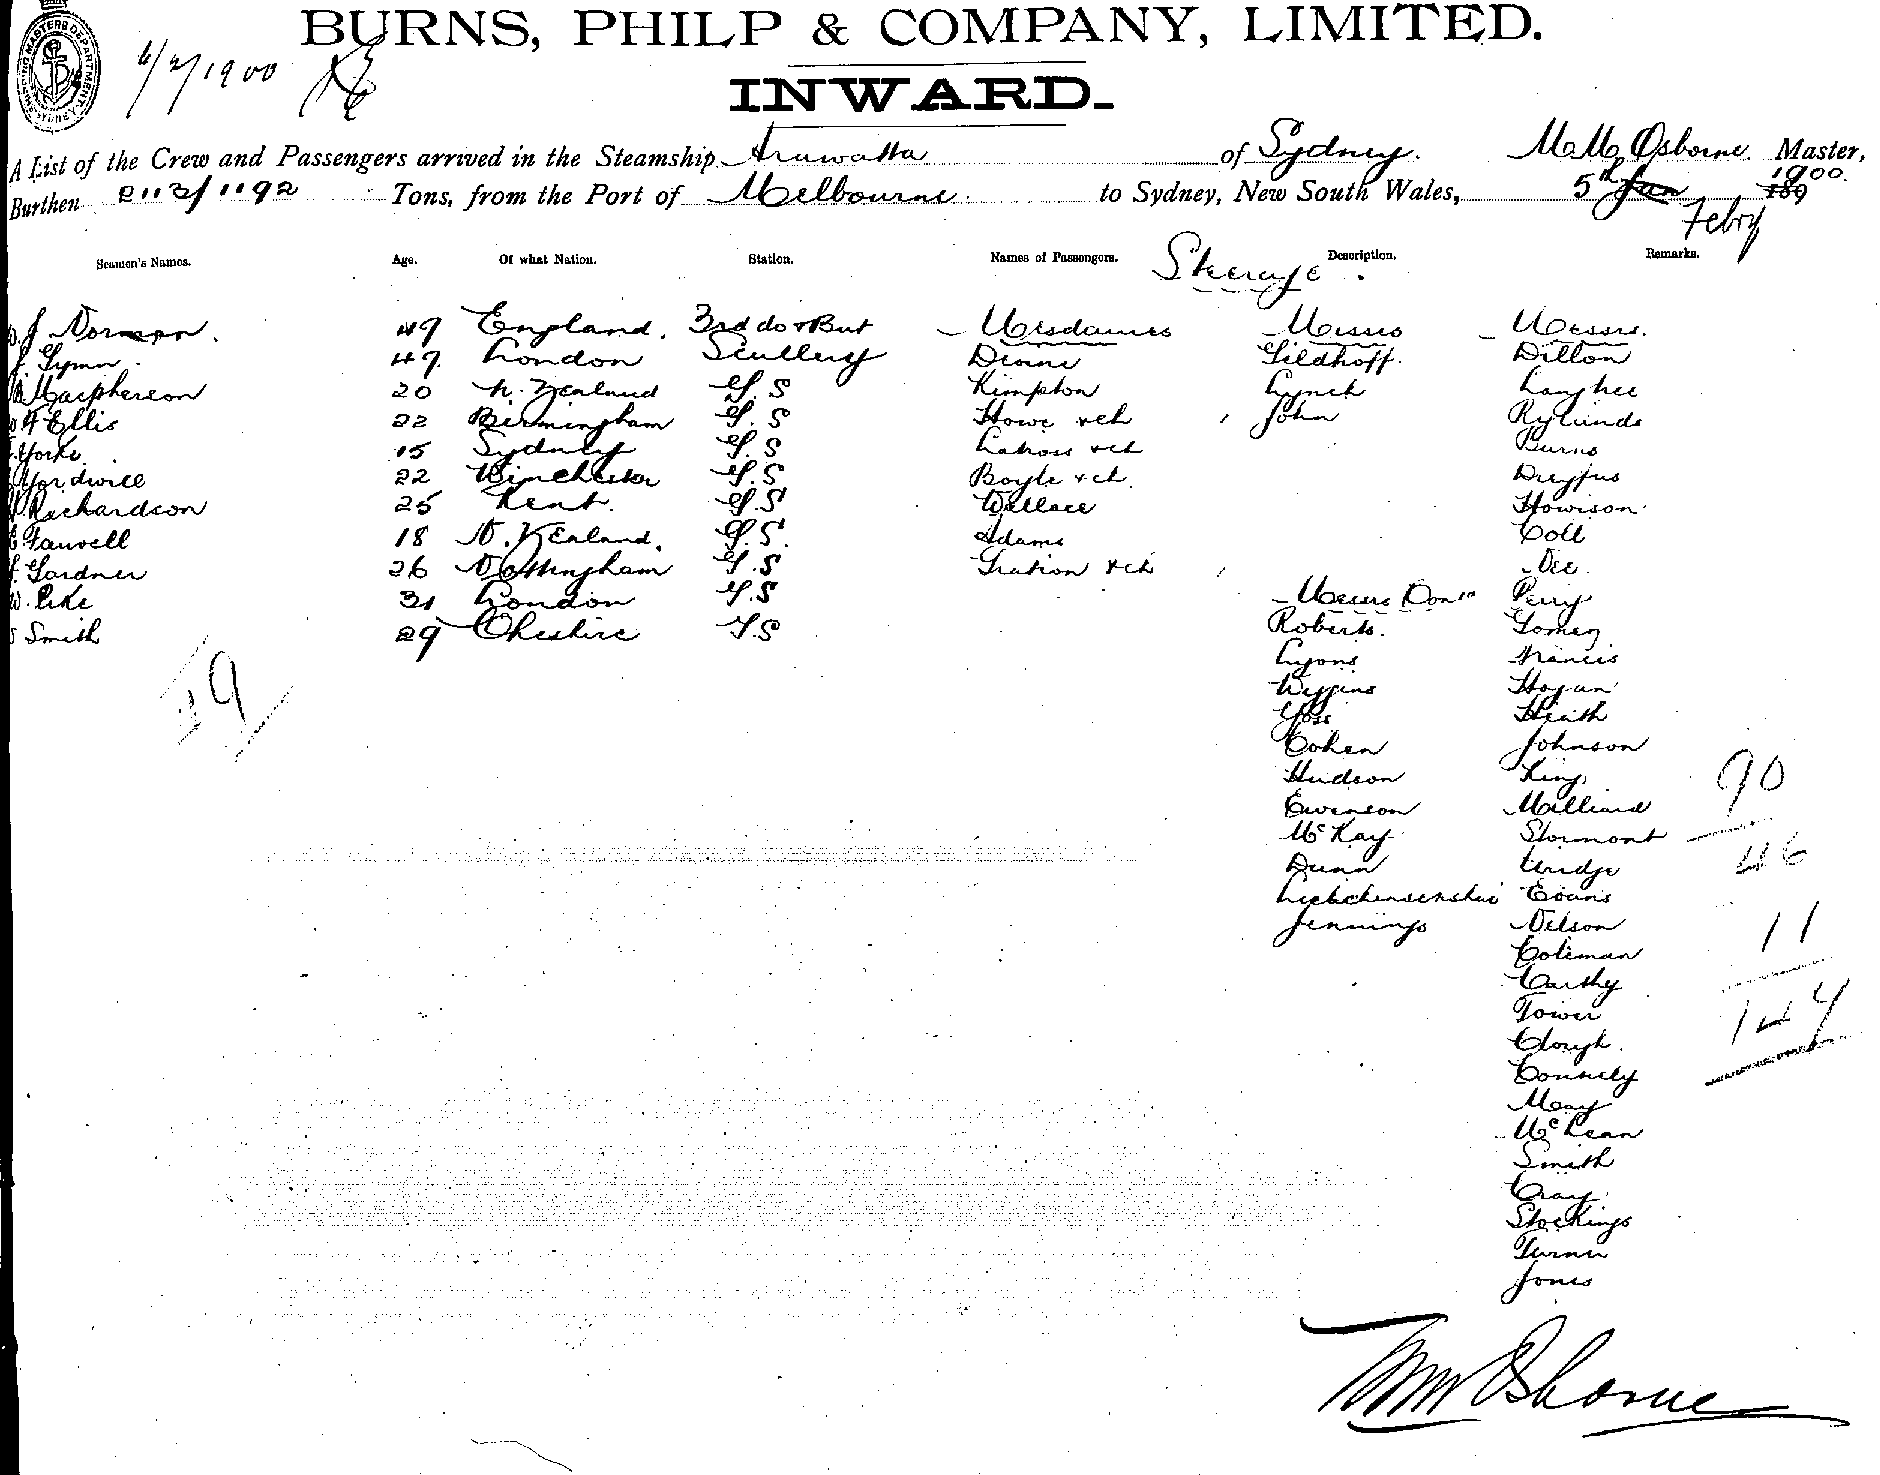 BURNS, PHILP & COMPANY, LIMITED.
6/2/1900
INWARD.
A List of the Crew and Passengers arrived in the Steamship Arawatta of Sydney. Osborne Master,
Burthen 2113/1192 Tons, from the Port of Melbourne to Sydney, New South Wales, 5th Jan Febry 189 1900.
Seamen's Names. Age. Of what Nation. Station. Names of Passengers. Steerage. Description. Remarks.
J Norman. 49 England. 3rd do & But Mesdames Misses Messrs.
Lynn 47 London Scullery Gildhoff. Dillon
Macpherson 20 N. Zealand G.S Kimpton Lynch Langhee
Ellis 22 Birmingham G.S Howe & ch John Rylands
Yorke 15 Sydney G.S & ch Burns
22 Winchester G.S Boyle & ch. Dreyfus
Richardson 25 Kent. G.S Wallace Howison
Farwell 18 N. Zealand. G.S. Adams Coll
Gardner 26 Nottingham G.S & ch Dee
W. Pike 31 London G.S Messrs Cont Perry
Smith 29 Cheshire G.S Roberts. Gomez
59 Lyons Francis
Wiggins Hogan
Heath
Cohen Johnson
Hudson King 90
Ewenson Milliard
McKay Stormont 46
Dunn Uridge
Evans
Jennings Nelson 11
Coleman
Carthy
Tower 147
Clough.
Connely
May
McLean
Smith
Cray
Stockings
Turner
Jones
Wm Osborne